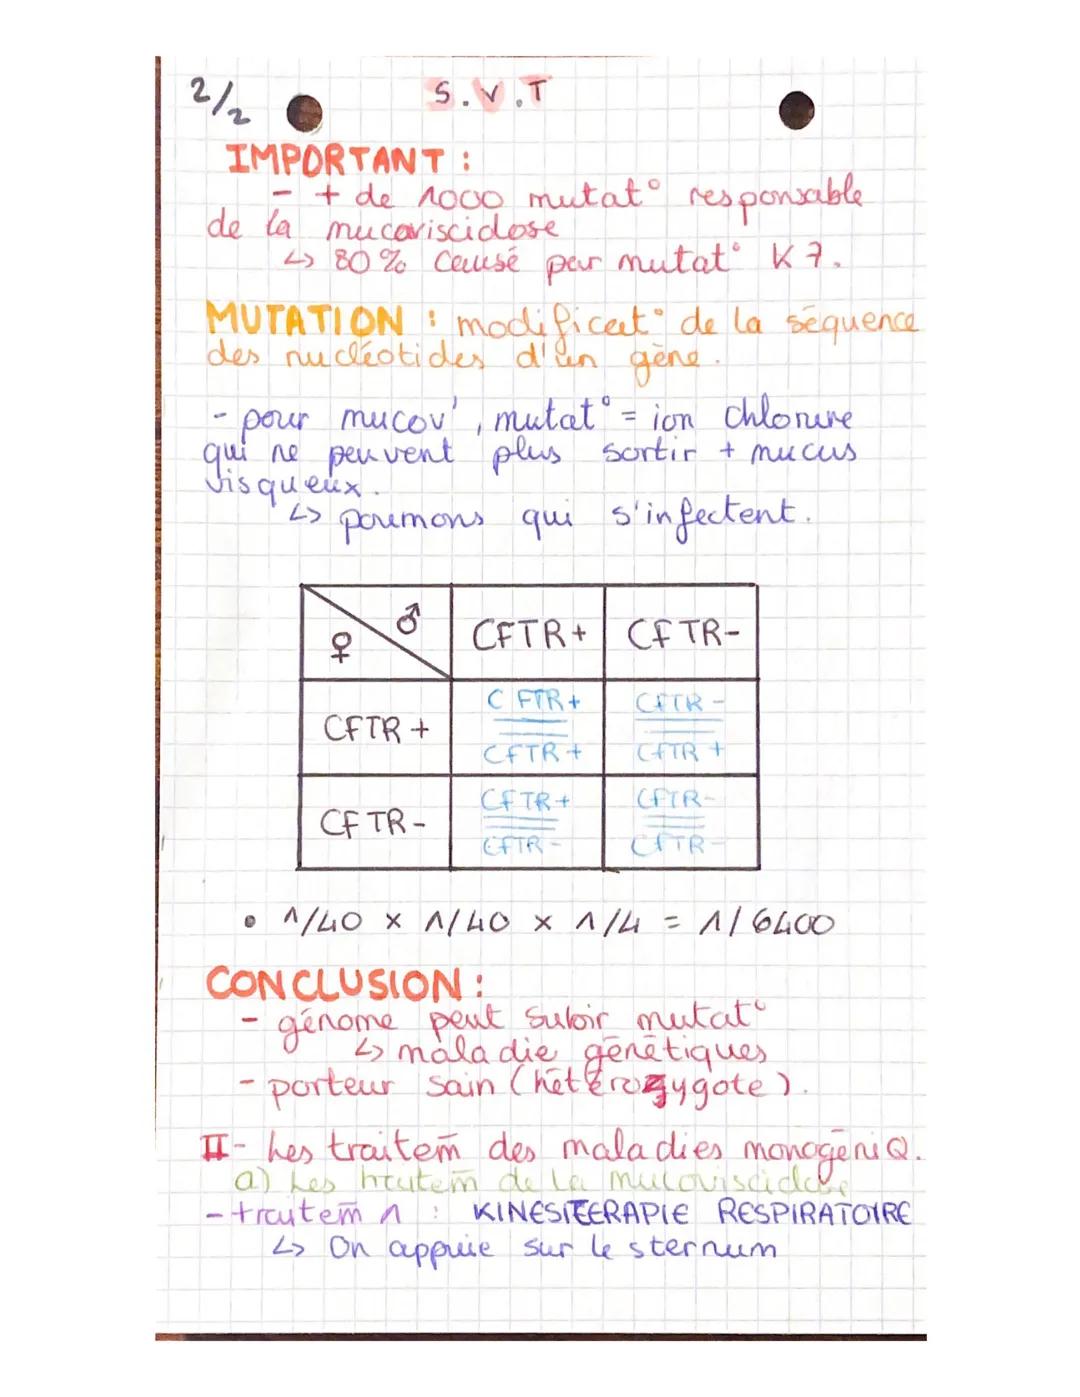 2/2 S.V.T
IMPORTANT :
- + de 1000 mutat° responsable
de la mucoviscidose
↳ 80% causé par mutat° K7.
MUTATION : modificat° de la séquence
des nucléotides d'un gène.
- pour mucov', mutat° = ion chlorure
qui ne peuvent plus sortir + mucus
visqueux.
↳ poumons qui s'infectent.
♀ ♂ CFTR+ CFTR-
CFTR+ CFTR-
CFTR+
CFTR+ CFTR+
CFTR+ CFTR-
CFTR-
CFTR- CFTR-
• 1/40 x 1/40 x 1/4 = 1/6400
CONCLUSION :
- génome peut subir mutat°
↳ maladie génétiques
- porteur sain (hétérozygote).
II- Les traitem̃ des maladies monogéniQ.
a) Les traitem̃ de la mucoviscidose
- traitem̃ 1 : KINESITERAPIE RESPIRATOIRE
↳ On appuie sur le sternum